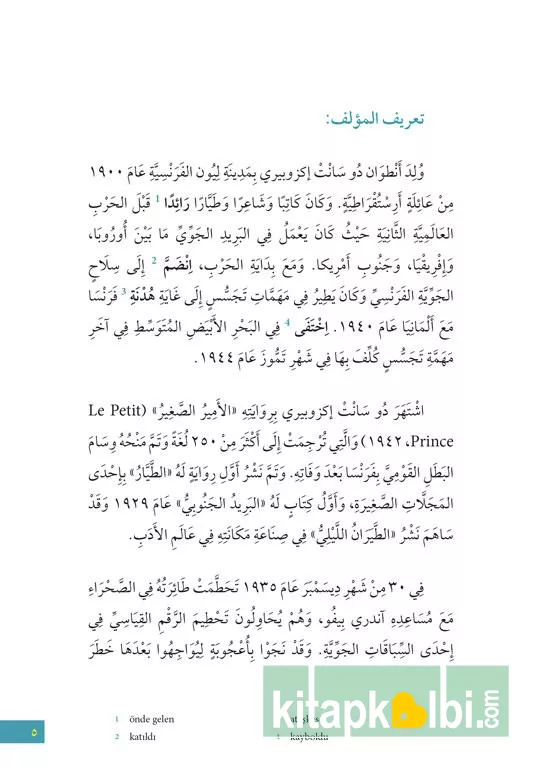 تعريف المؤلف:
وُلِدَ أَنْطوَان دُو سَانْتْ إكزوبيري بِمَدِينَةِ لِيُون الفَرَنْسِيَّةِ عَامَ ١٩٠٠
مِنْ عَائِلَةٍ أَرِسْتُقْرَاطِيَّةٍ. وَكَانَ كَاتِبًا وَشَاعِرًا وَطَيَّارًا رَائِدًا 1 قَبْلَ الحَرْبِ
العَالَمِيَّةِ الثَّانِيَةِ حَيْثُ كَانَ يَعْمَلُ فِي البَرِيدِ الجَوِّيِّ مَا بَيْنَ أُورُوبَا،
وَإِفْرِيقْيَا، وَجَنُوبِ أَمْرِيكا. وَمَعَ بِدَايَةِ الحَرْبِ، اِنْضَمَّ 2 إِلَى سِلَاحِ
الجَوِّيَّةِ الفَرَنْسِيِّ وَكَانَ يَطِيرُ فِي مَهَمَّاتِ تَجَسُّسٍ إِلَى غَايَةِ هُدْنَةِ 3 فَرَنْسَا
مَعَ أَلْمَانِيَا عَامَ ١٩٤٠. اِخْتَفَى 4 فِي البَحْرِ الأَبْيَضِ المُتَوَسِّطِ فِي آخَرِ
مَهَمَّةِ تَجَسُّسٍ كُلِّفَ بِهَا فِي شَهْرِ تَمُّوزَ عَامَ ١٩٤٤.
اشْتَهَرَ دُو سَانْتْ إكزوبيري بِرِوَايَتِهِ «الأَمِيرُ الصَّغِيرُ» (Le Petit
Prince، ١٩٤٢) وَالَّتِي تُرْجِمَتْ إِلَى أَكْثَرَ مِنْ ٢٥٠ لُغَةً وَتَمَّ مَنْحُهُ وِسَامَ
البَطَلِ القَوْمِيِّ بِفَرَنْسَا بَعْدَ وَفَاتِهِ. وَتَمَّ نَشْرُ أَوَّلِ رِوَايَةٍ لَهُ «الطَّيَّارُ» بِإِحْدَى
المَجَلَّاتِ الصَّغِيرَةِ، وَأَوَّلُ كِتَابٍ لَهُ «البَرِيدُ الجَنُوبِيُّ» عَامَ ١٩٢٩ وَقَدْ
سَاهَمَ نَشْرُ «الطَّيَرَانُ اللَّيْلِيُّ» فِي صِنَاعَةِ مَكَانَتِهِ فِي عَالَمِ الأَدَبِ.
فِي ٣٠ مِنْ شَهْرِ دِيسَمْبَرَ عَامَ ١٩٣٥ تَحَطَّمَتْ طَائِرَتُهُ فِي الصَّحْرَاءِ
مَعَ مُسَاعِدِهِ آندري بِيفُو، وَهُمْ يُحَاوِلُونَ تَحْطِيمَ الرَّقْمِ القِيَاسِيِّ فِي
إِحْدَى السِّبَاقَاتِ الجَوِّيَّةِ. وَقَدْ نَجَوْا بِأُعْجُوبَةٍ لِيُوَاجِهُوا بَعْدَهَا خَطَرَ
1 önde gelen
2 katıldı
4 kayboldu
kitapkalbi.com
٥